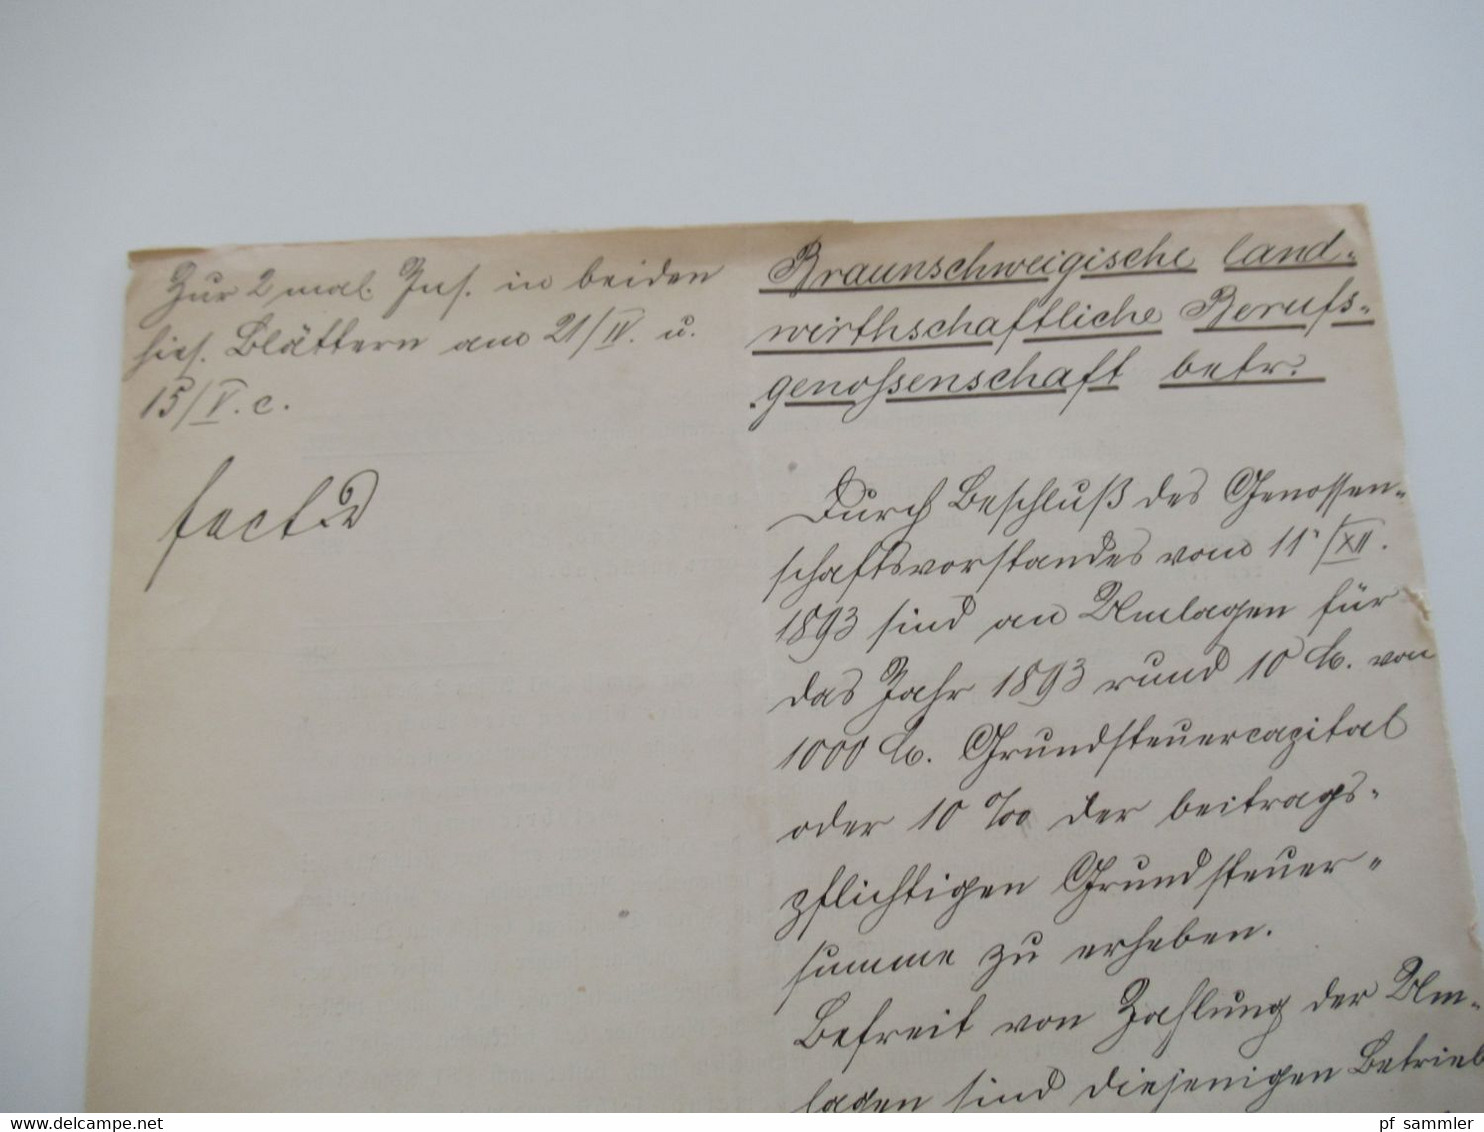 Zur 2 mal. Ins. in beiden
hies. Blättern am 21/IV. u.
15/V. c.
fact.
Braunschweigische land-
wirthschaftliche Berufs-
genossenschaft betr.
Durch Beschluß des Genossen-
schaftsvorstandes vom 11./XII.
1893 sind an Umlagen für
das Jahr 1893 rund 10 M. von
1000 M. Grundsteuercapital
oder 10 ‰ der beitrags-
pflichtigen Grundsteuer-
summe zu erheben.
Befreit von Zahlung der Um-
lagen sind diejenigen Betrieb
www.delcampe.net
pf_sammler